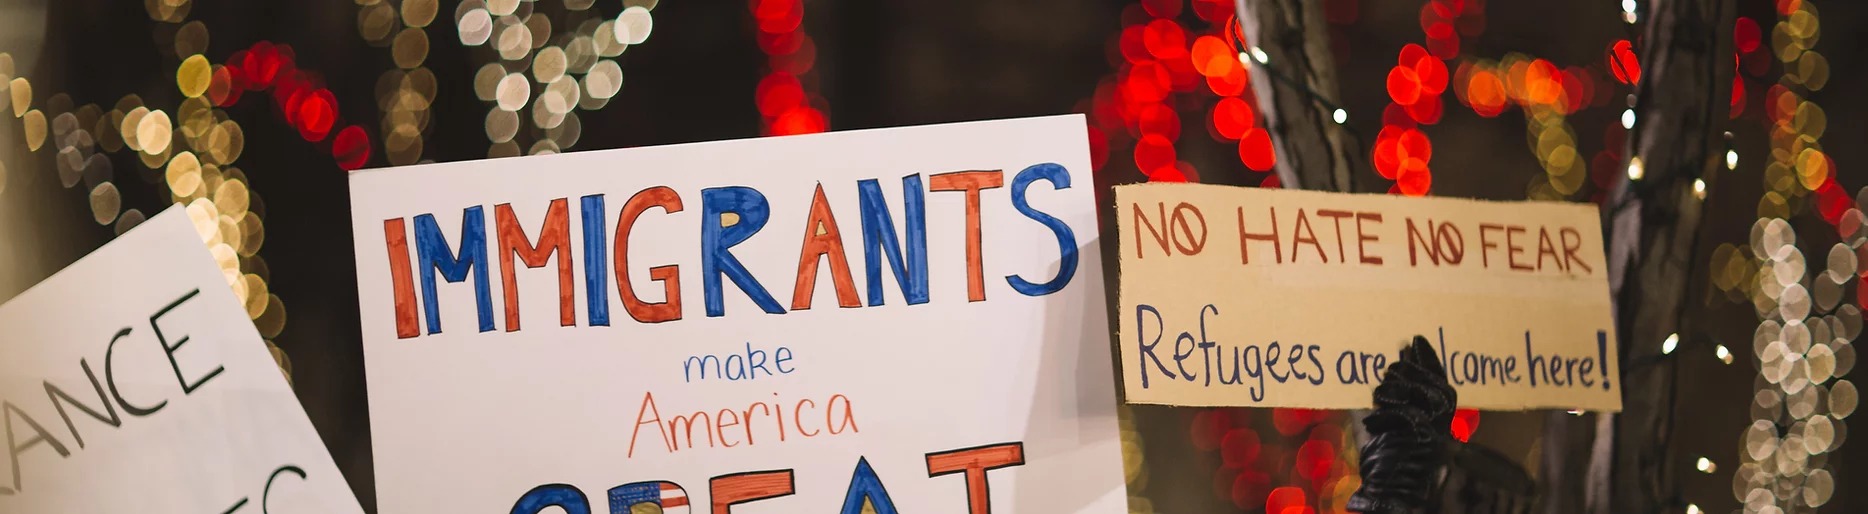 ANCE
IMMIGRANTS
make
America
GREAT
NO HATE NO FEAR
Refugees are lcome here!